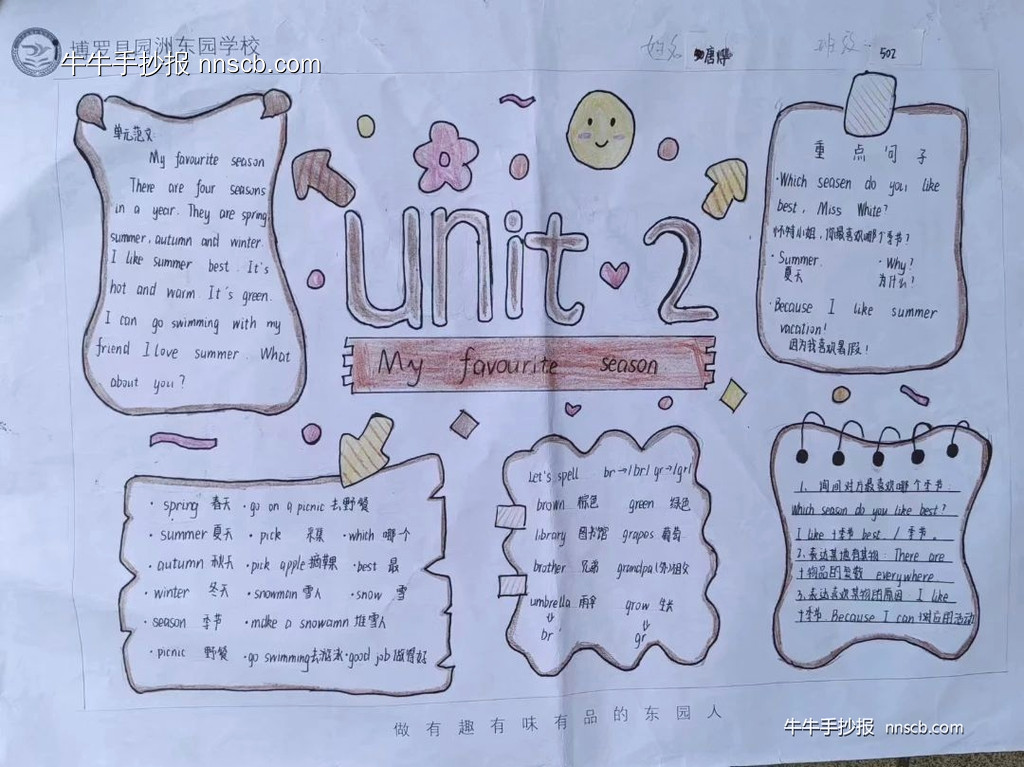 博罗县园洲东园学校
牛牛手抄报 nnscb.com
姓名 唐
班级 502
单元范文:
My favourite season
There are four seasons
in a year. They are spring
summer, autumn and winter.
I like summer best. It's
hot and warm It's green.
I can go swimming with my
friend I love summer. What
about you?
unit 2
My favourite season
重点句子
·Which seasen do you like
best, Miss White?
怀特小姐,你最喜欢哪个季节?
·Summer. ·Why?
夏天 为什么!
·Because I like summer
vacation!
因为我喜欢暑假!
·spring 春天 ·go on a picnic 去野餐
·summer 夏天 ·pick 采集 ·which 哪个
·autumn 秋天 ·pick apple 摘苹果 ·best 最
·winter 冬天 ·snowman 雪人 ·snow 雪
·season 季节 ·make a snowamn 堆雪人
·picnic 野餐 ·go swimming 去游泳 ·good job 做得好
Let's spell br→/br/ gr→/gr/
brown 棕色 green 绿色
library 图书馆 grapos 葡萄
brother 兄弟 grandpa (外)祖父
umbrella 雨伞 grow 生长
br gr
1、询问对方最喜欢哪个季节:
Which season do you like best?
I like +季节 best. / 季节。
2、表达某地有某物: There are
+物品的复数 everywhere.
3、表达喜欢某物的原因 I like
+季节 Because I can +对应活动
做有趣有味有品的东园人
牛牛手抄报 nnscb.com